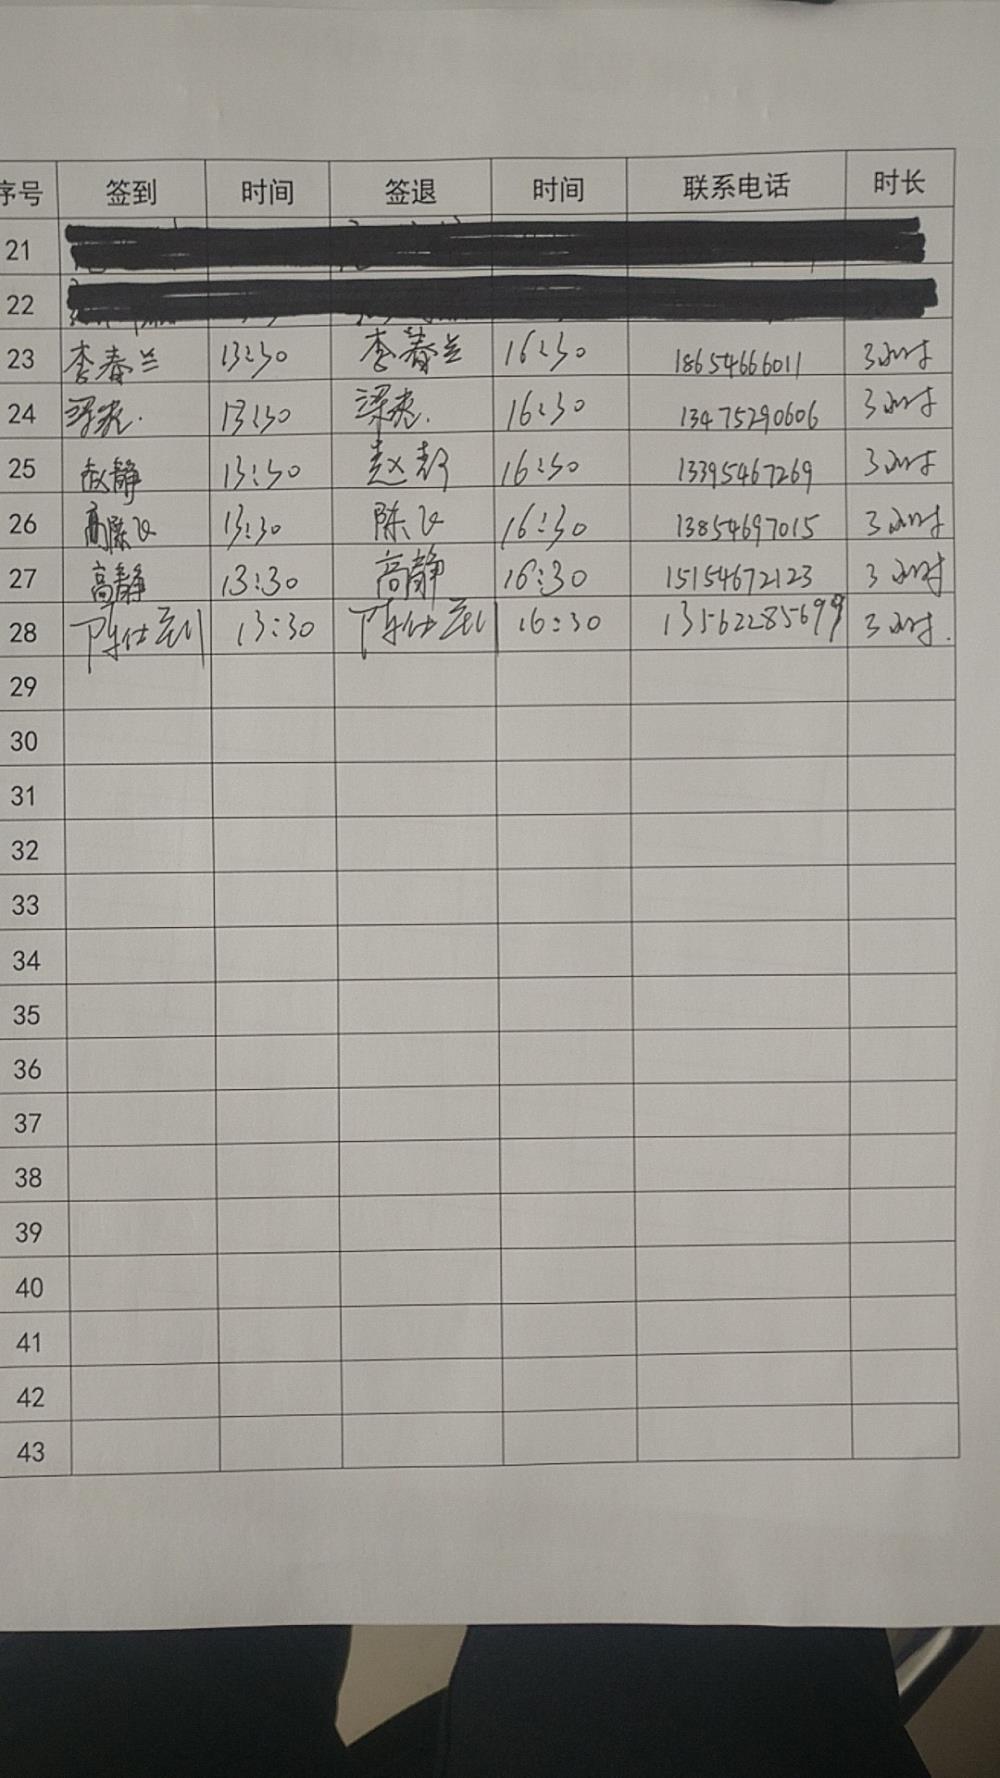 序号 签到 时间 签退 时间 联系电话 时长
21
22
23 李春兰 13:30 李春兰 16:30 18654666011 3小时
24 梁 13:30 梁 16:30 13475290606 3小时
25 赵静 13:30 赵静 16:30 13395467269 3小时
26 陈飞 13:30 陈飞 16:30 13854697015 3小时
27 高静 13:30 高静 16:30 15154672123 3小时
28 陈仕 13:30 陈仕 16:30 13562285699 3小时.
29
30
31
32
33
34
35
36
37
38
39
40
41
42
43